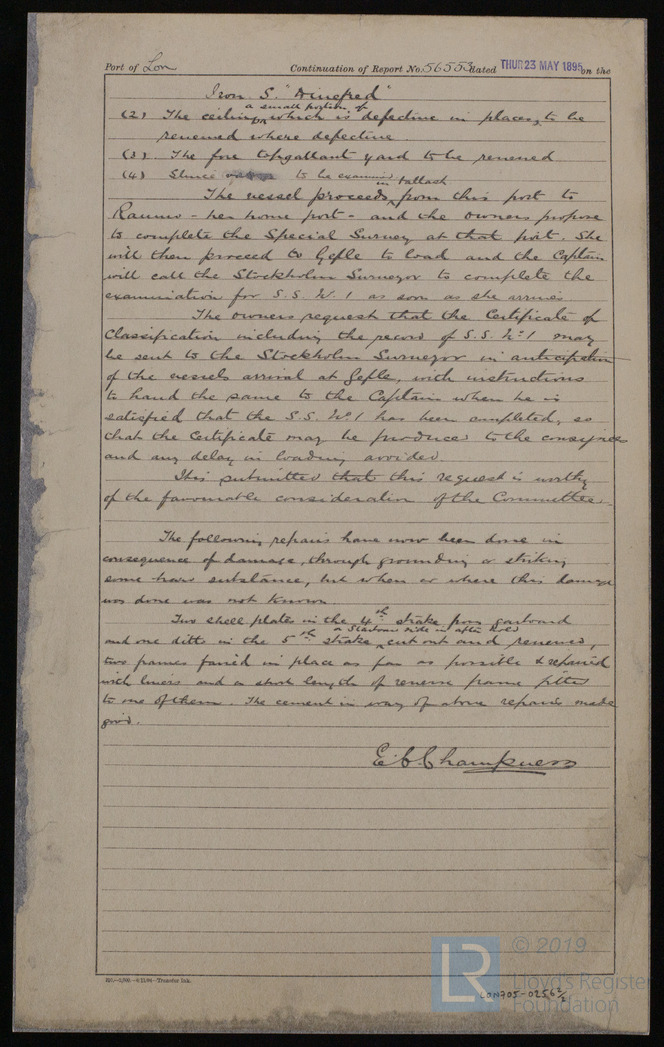 Port of Lon Continuation of Report No. 56553 dated THUR 23 MAY 1895 on the
Iron S. "Winefred"
a small portion of
(2) The ceiling which is defective in places, to be
renewed where defective
(3). The fore topgallant yard to be renewed
(4) Sluice to be examined
in ballast
The vessel proceeds from this port to
Raumo - her home port - and the owners propose
to complete the Special Survey at that port. She
will then proceed to Gefle to load and the Captain
will call the Stockholm Surveyor to complete the
examination for S.S. No. 1 as soon as she arrives
The owners request that the Certificate of
Classification including the record of S.S. No 1 may
be sent to the Stockholm Surveyor in anticipation
of the vessels arrival at Gefle, with instructions
to hand the same to the Captain when he is
satisfied that the S.S. No 1 has been completed, so
that the Certificate may be produced to the consignees
and any delay in loading avoided.
It is submitted that this request is worthy
of the favourable consideration of the Committee.
The following repairs have now been done in
consequence of damage, through grounding or striking
some hard substance, but when or where this damage
was done was not known.
Two shell plates in the 4th strake from garboard
on Starboard side in after hold
and one ditto in the 5th strake, cut out and renewed,
two frames faired in place as far as possible & repaired
with liners and a short length of reverse frame fitted
to one of them. The cement in way of above repairs made
good.
E C Champness
© 2019
LR Lloyd's Register
Foundation
LON705-0256 2/2